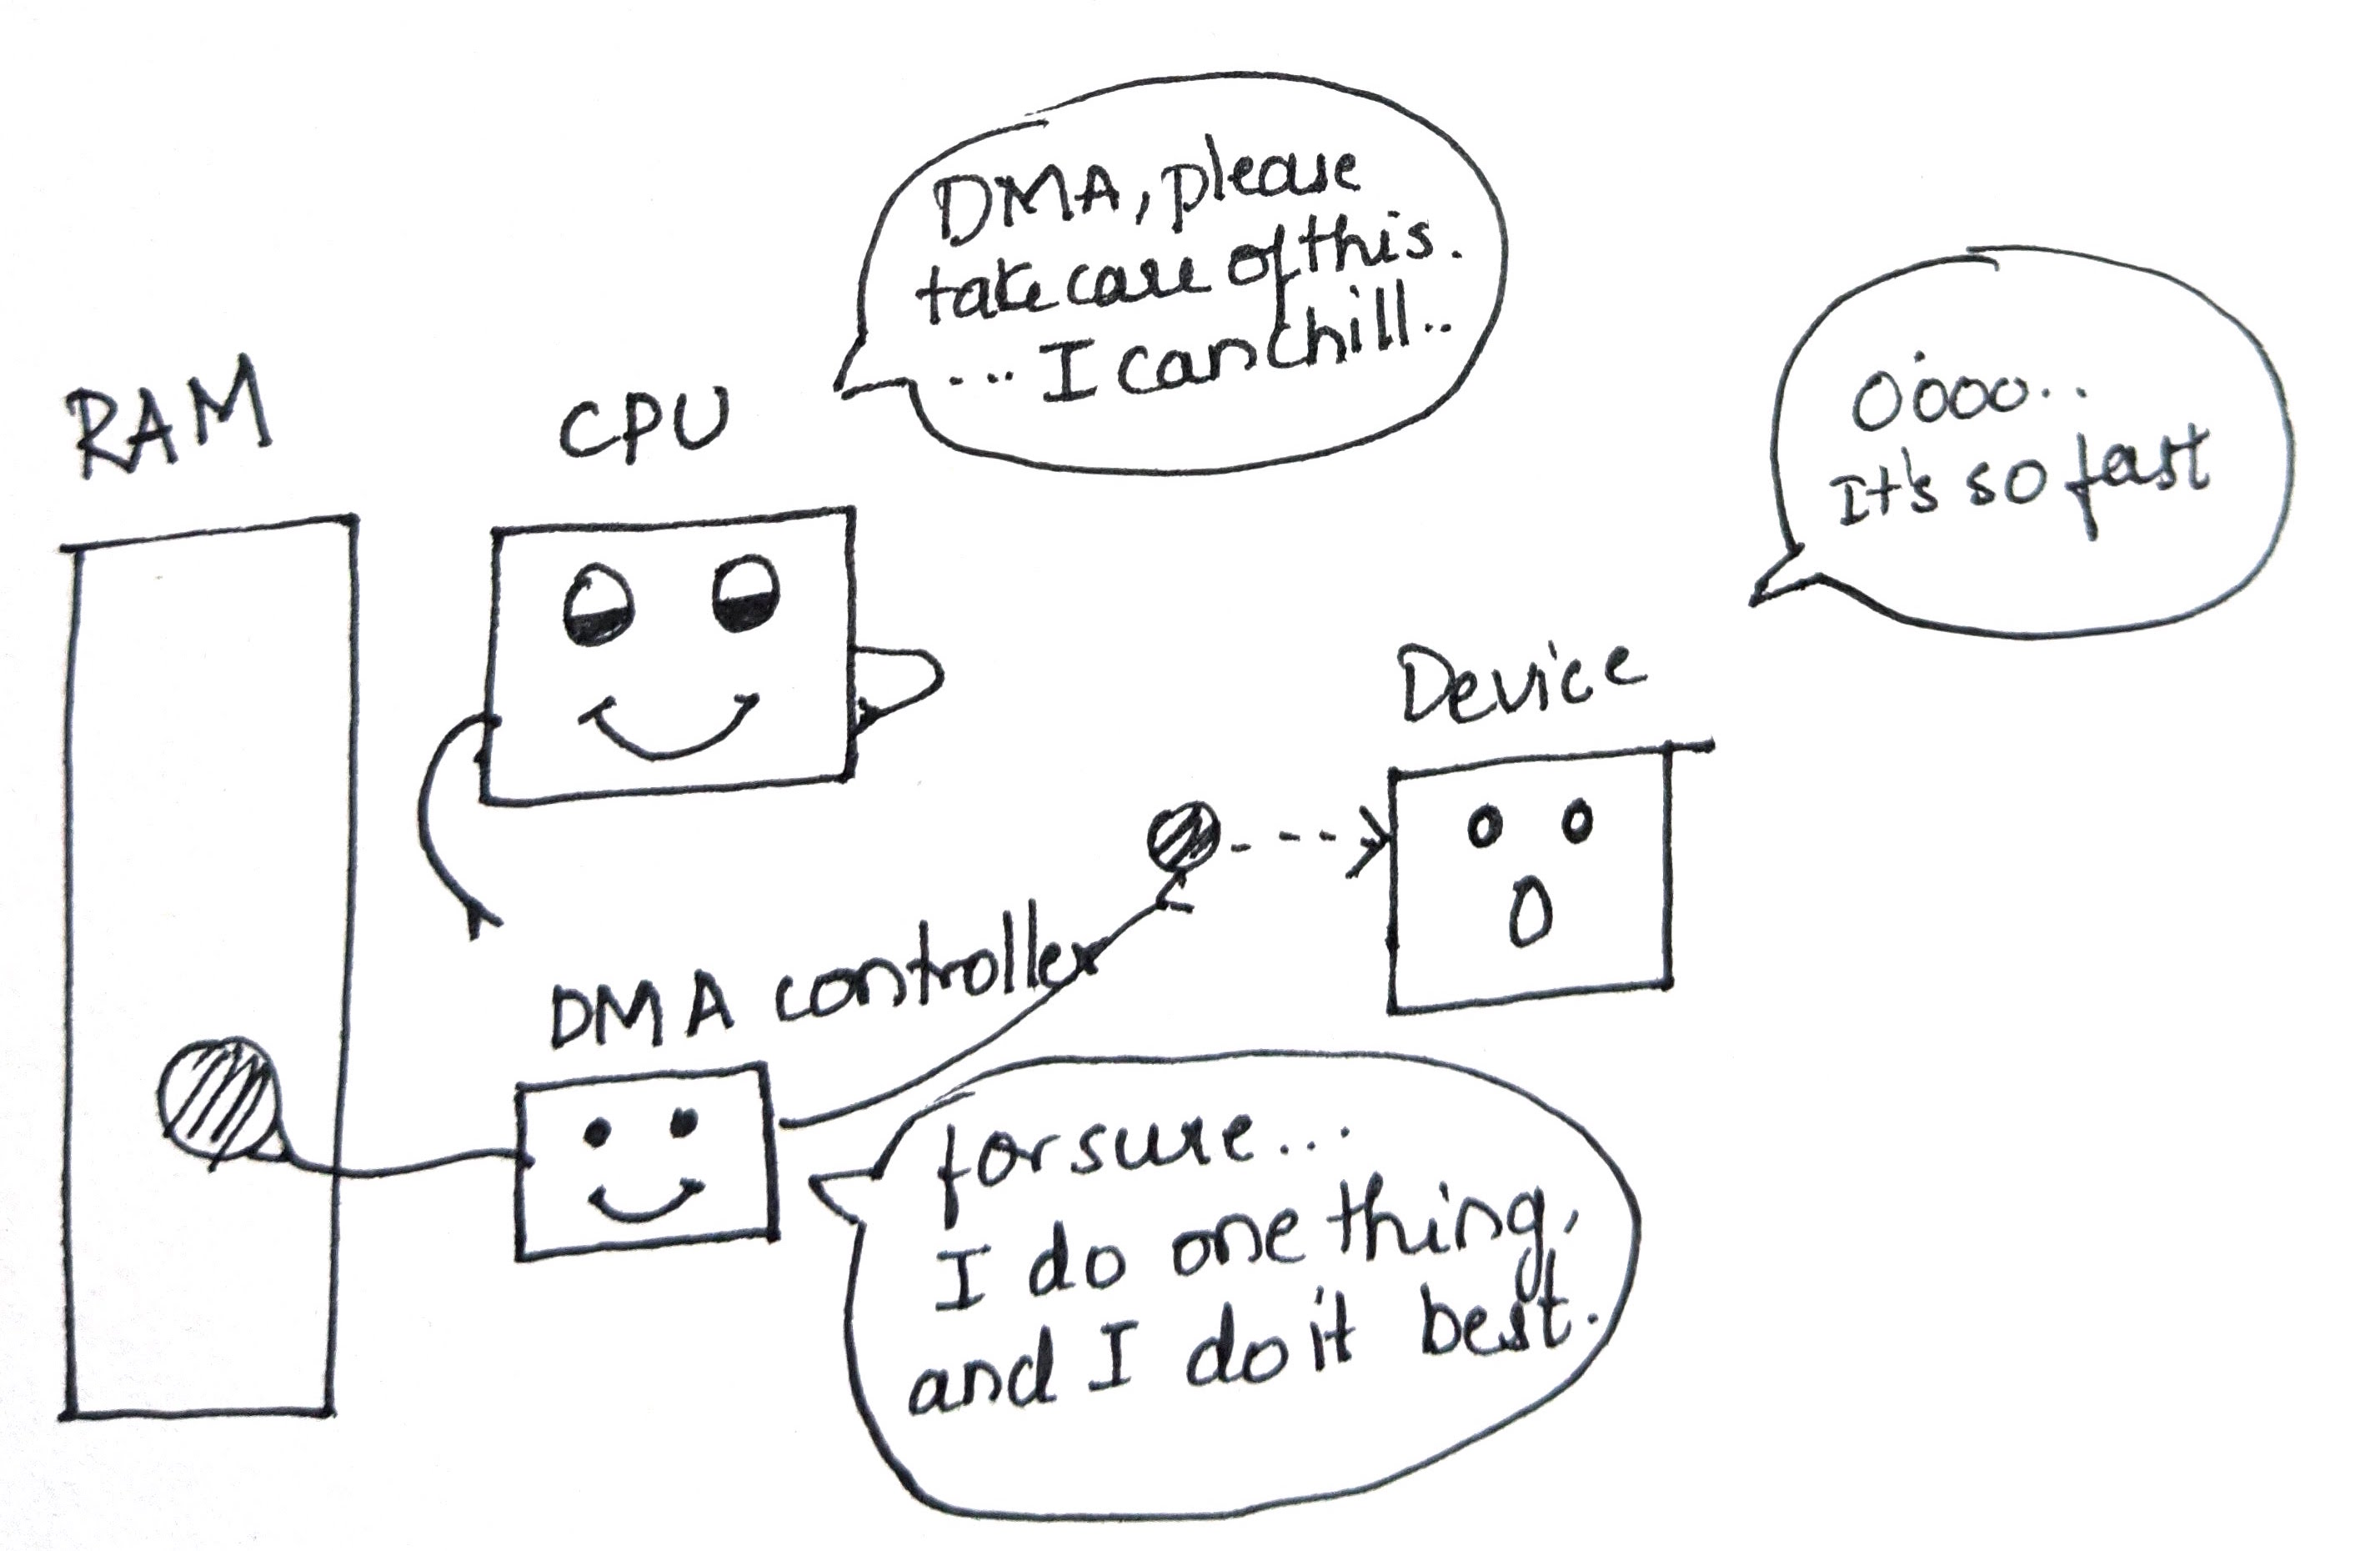 DMA, please
take care of this.
... I can chill..
Oooo..
It's so fast
RAM
CPU
Device
DMA controller
for sure...
I do one thing,
and I do it best.